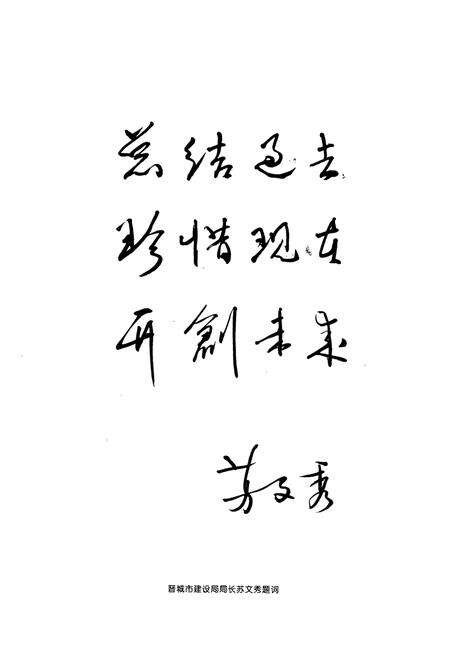 总结过去
珍惜现在
开創未来
苏文秀
晋城市建设局局长苏文秀题词